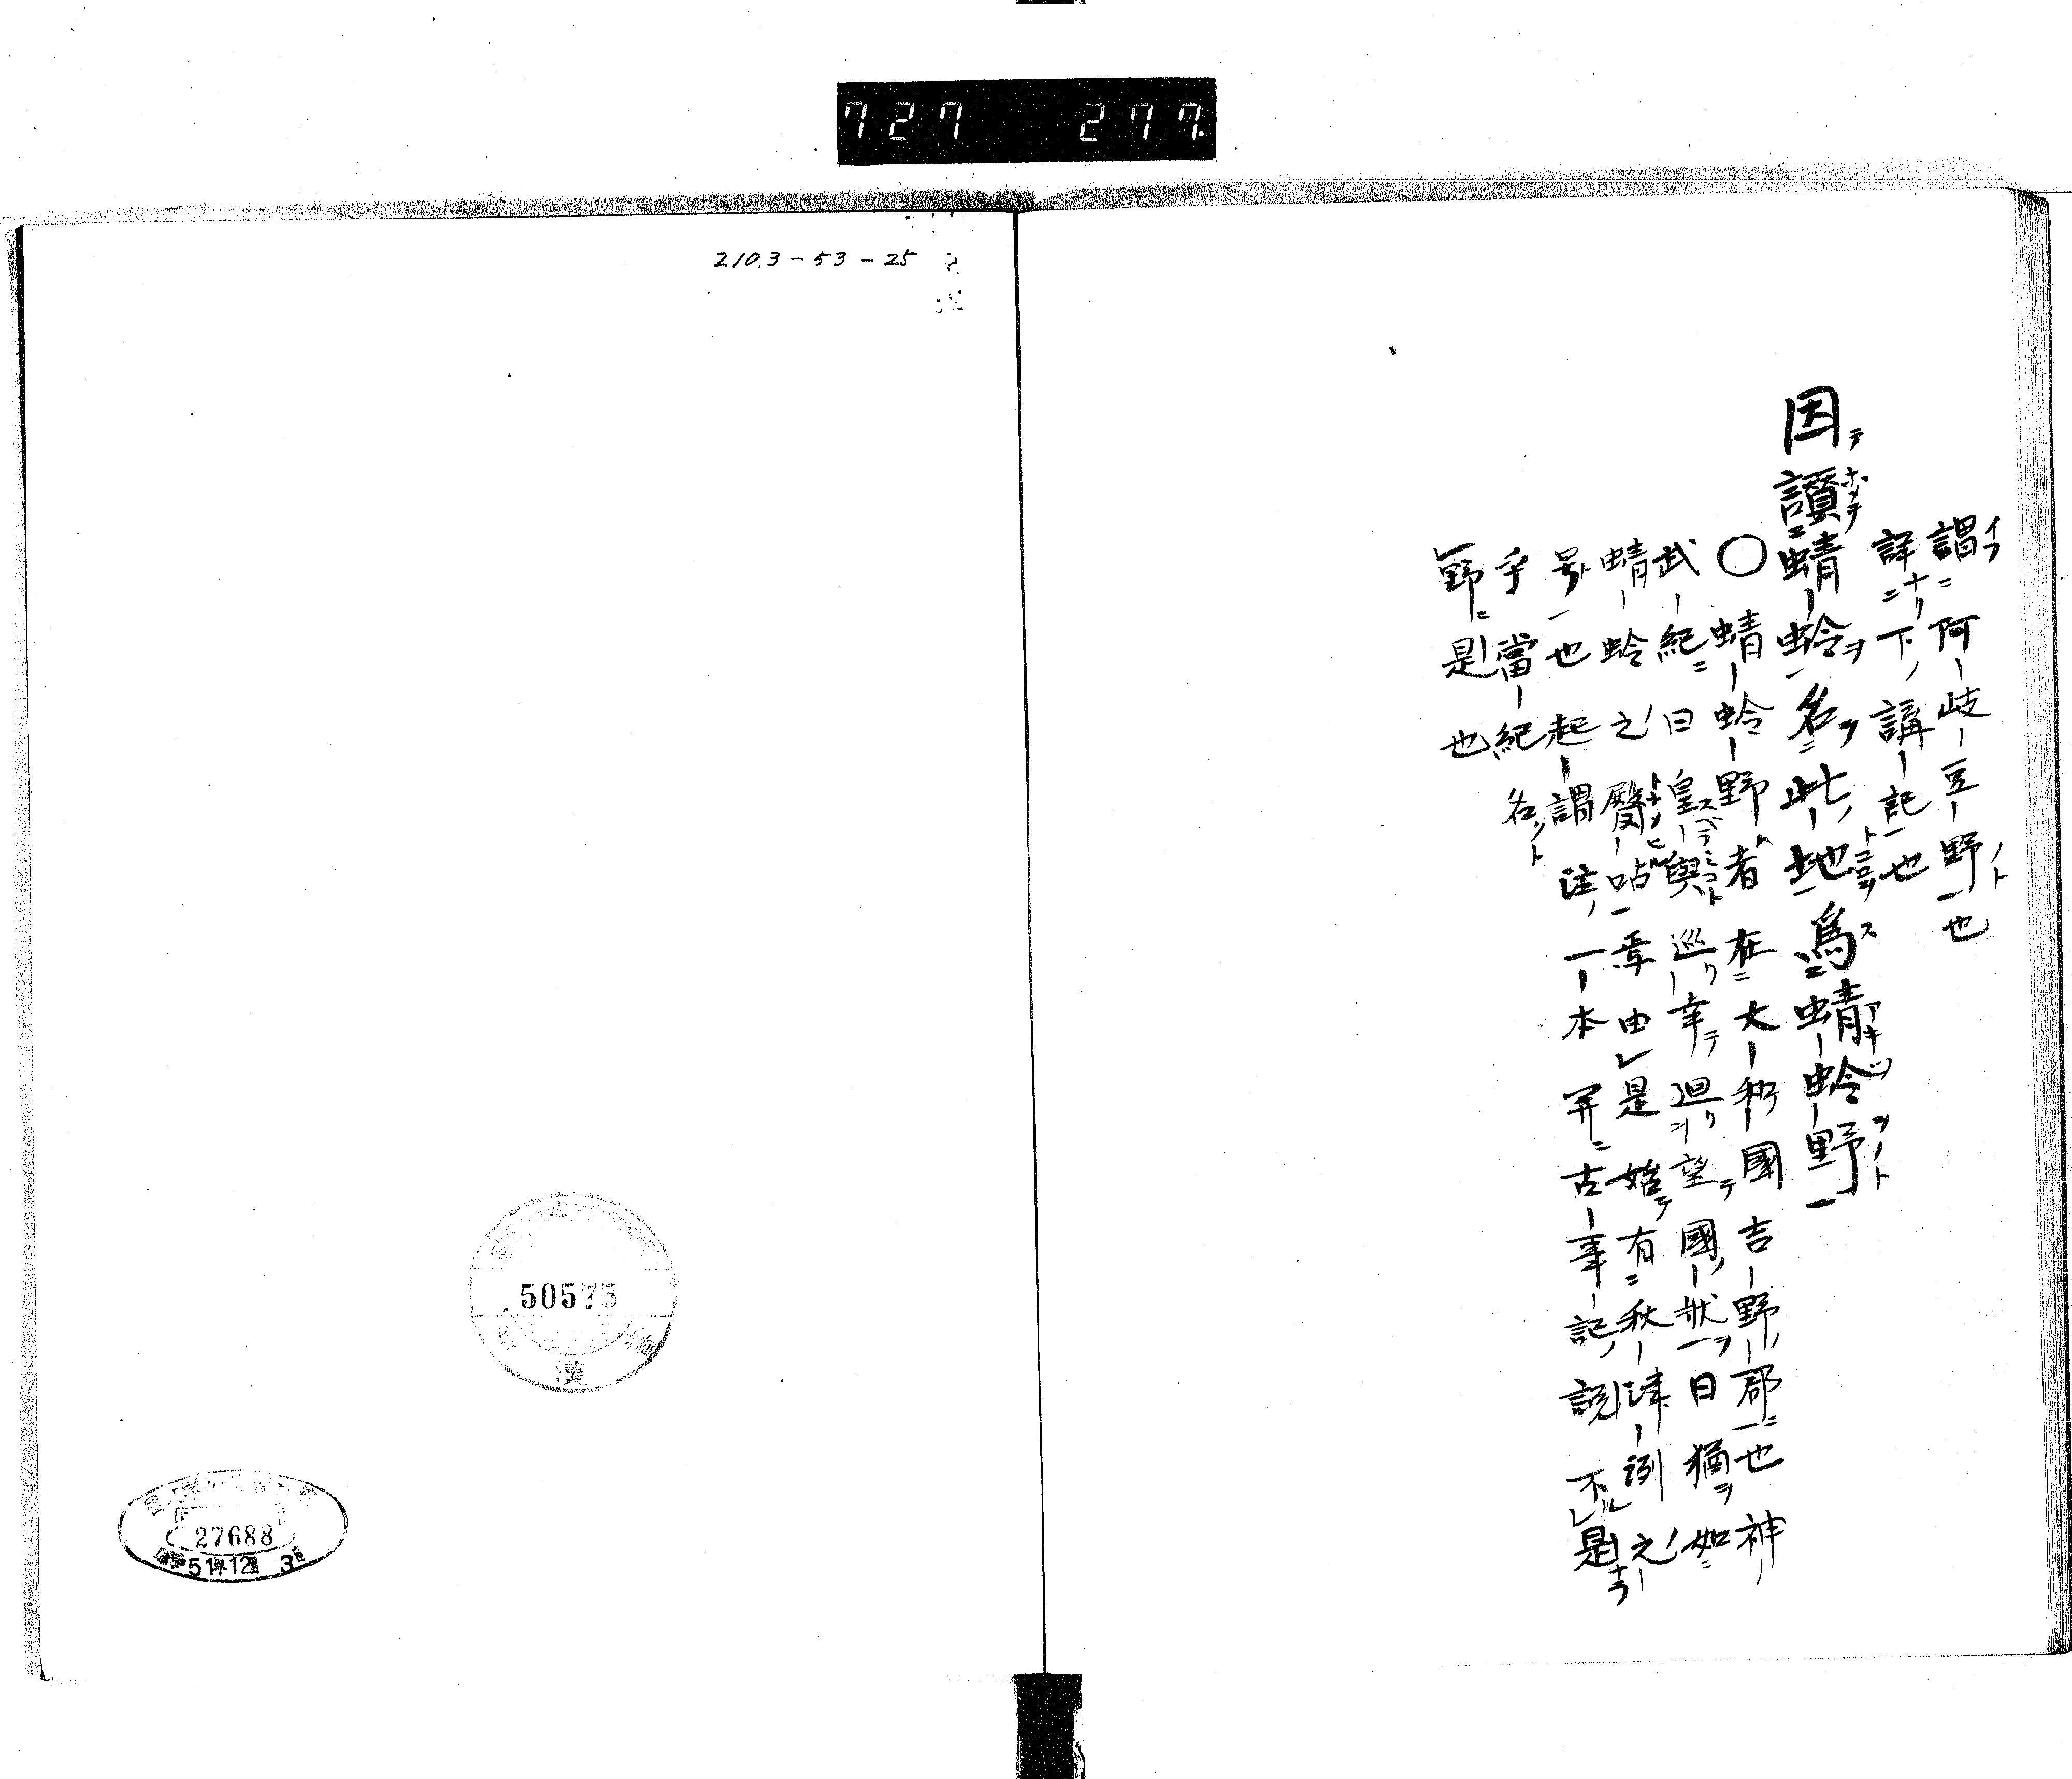 727 277
謂阿岐豆野也
詳下講記也
因讃蜻蛉名此地爲蜻蛉野
〇蜻蛉野者在大和國吉野郡也神
武紀曰皇輿巡幸廻望國狀曰猶如
蜻蛉之臀呫焉由是始有秋津洲之
号也起謂注一本并古事記説不是
乎當紀名
野是也
210.3-53-25
50575
漢
27688